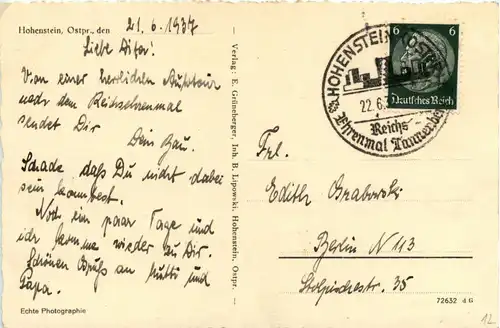 Hohenstein, Ostpr., den 21.6.1937
Liebe
Von einer herrlichen Autotour
nach dem Reichsehrenmal
sendet Dir
Dein
Schade, daß Du nicht dabei
sein konntest.
Noch ein paar Tage und
ich komme wieder zu Dir.
Schönen Gruß an Mutti und
Papa.
Echte Photographie
Verlag: E. Grüneberger, Inh. B. Lipowski, Hohenstein, Ostpr.
HOHENSTEIN
22.6.
Reichs
Ehrenmal Tannenberg
6 6
Deutsches Reich
Frl.
Edith Grabowski
Berlin N 113
Stolpischestr. 35
72632 d G
12